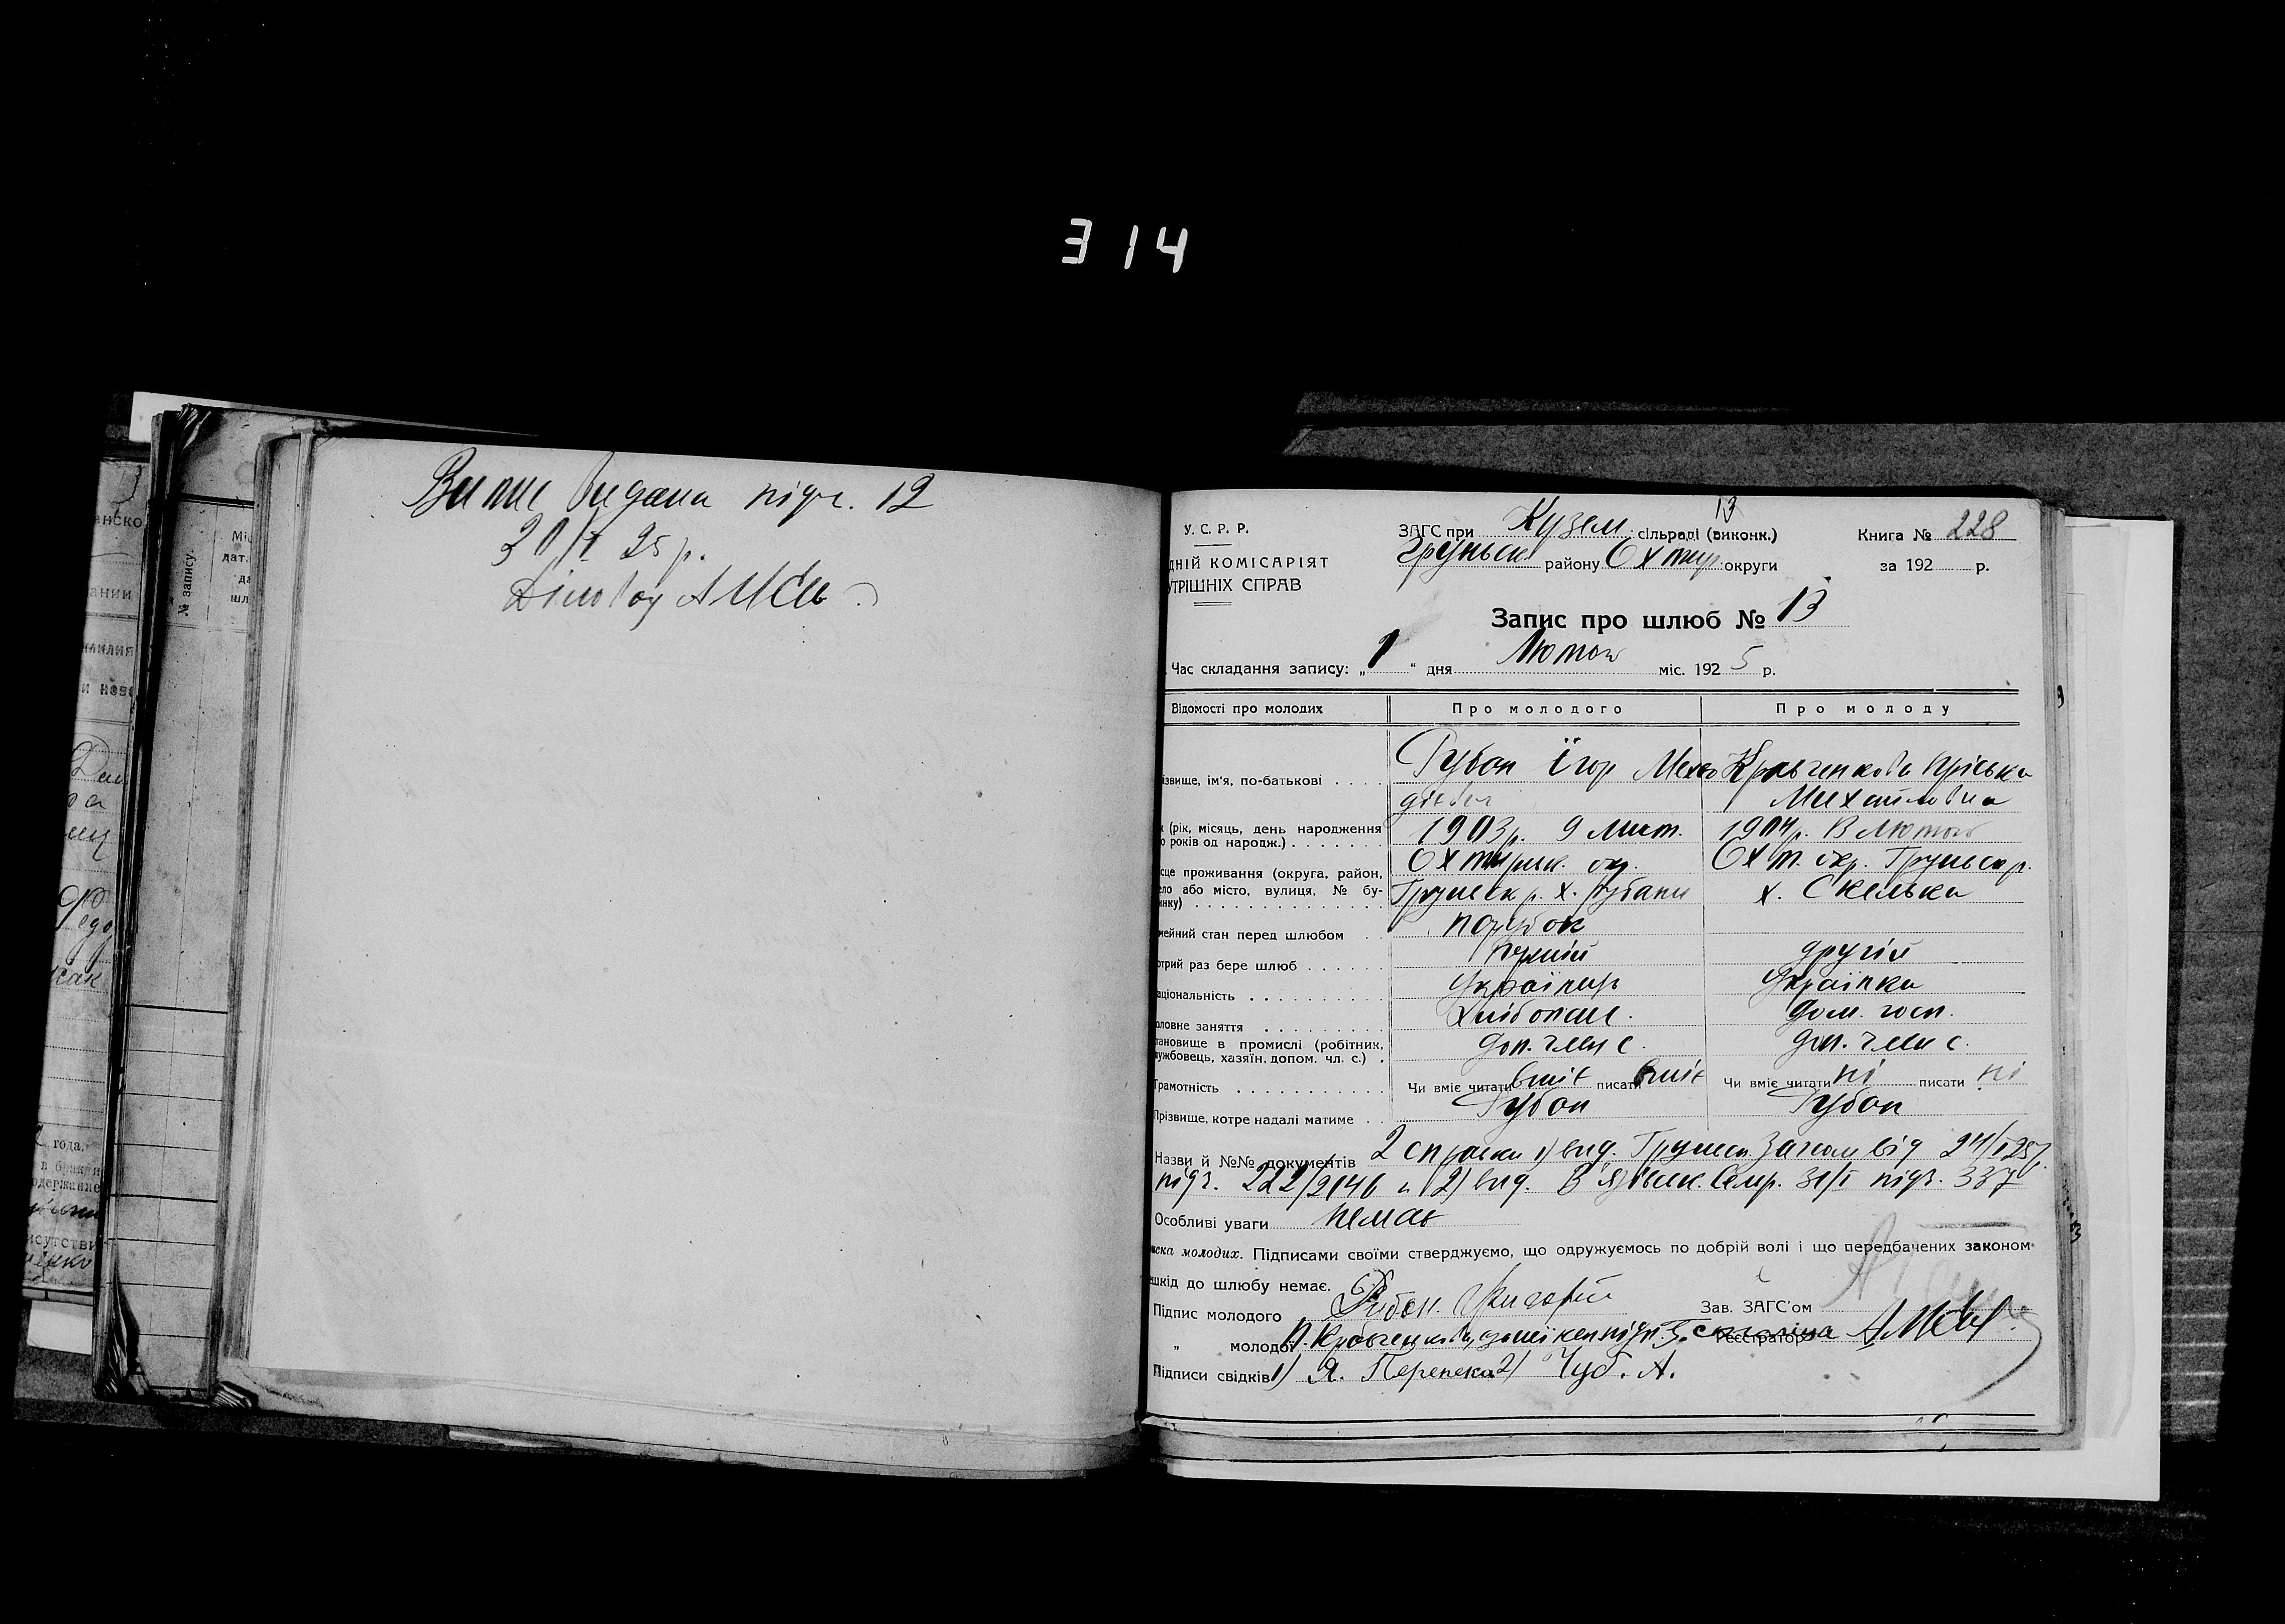 314
Випис видана підч. 12
30/I 25 р.
Діловод
У. С. Р. Р.
ДНІЙ КОМІСАРІЯТ
УТРІШНІХ СПРАВ
13
ЗАГС при Кузем. сільраді (виконк.)
Груньськ району Охтир округи
Книга № 228
за 192 р.
Запис про шлюб № 13
Час складання запису: „ 1 “ дня Лютого міс. 1925 р.
Відомості про молодих
Про молодого
Про молоду
ізвище, ім'я, по-батькові . . . .
Рубан Їгор Мехво
дієвич
Кравченкова Пріська
Михайловна
(рік, місяць, день народження
о років од народж.) . . . . . . .
1903 р. 9 Лист.
1904 р. В Лютого
сце проживання (округа, район,
ело або місто, вулиця, № бу-
инку) . . . . . . . . . . . . . . .
Охтирськ. окр.
Груньськ р. х. Рубани
Охт. окр. Груньськ р.
х. Скелька
мейний стан перед шлюбом . .
парубок
отрий раз бере шлюб . . . . . .
перший
другій
аціональність . . . . . . . . . .
Українець
Українка
оловне заняття . . . . . . . . .
Хлібопаш.
дом. госп.
тановище в промислі (робітник,
ужбовець, хазяїн, допом. чл. с.) .
доп. член с.
доп. член с.
Грамотність . . . . . . . . . . .
Чи вміє читати вміє писати вміє
Чи вміє читати ні писати ні
Прізвище, котре надалі матиме . .
Рубан
Рубан
Назви й №№ документів 2 справки 1) вид. Груньськ Загсом від 24/I 25 р.
підч. 222/2146 и 2) вид. В'язівськ. Сілр. 31/I підч. 337
Особливі уваги немає
иска молодих. Підписами своїми стверджуємо, що одружуємось по добрій волі і що передбачених законом
ешкід до шлюбу немає.
Підпис молодого Рубан. Григорій
Зав. ЗАГС'ом
„ молодої П. Кравченкова,
Реєстратор
Підписи свідків 1) Я. Перепека 2) Чуб. А.